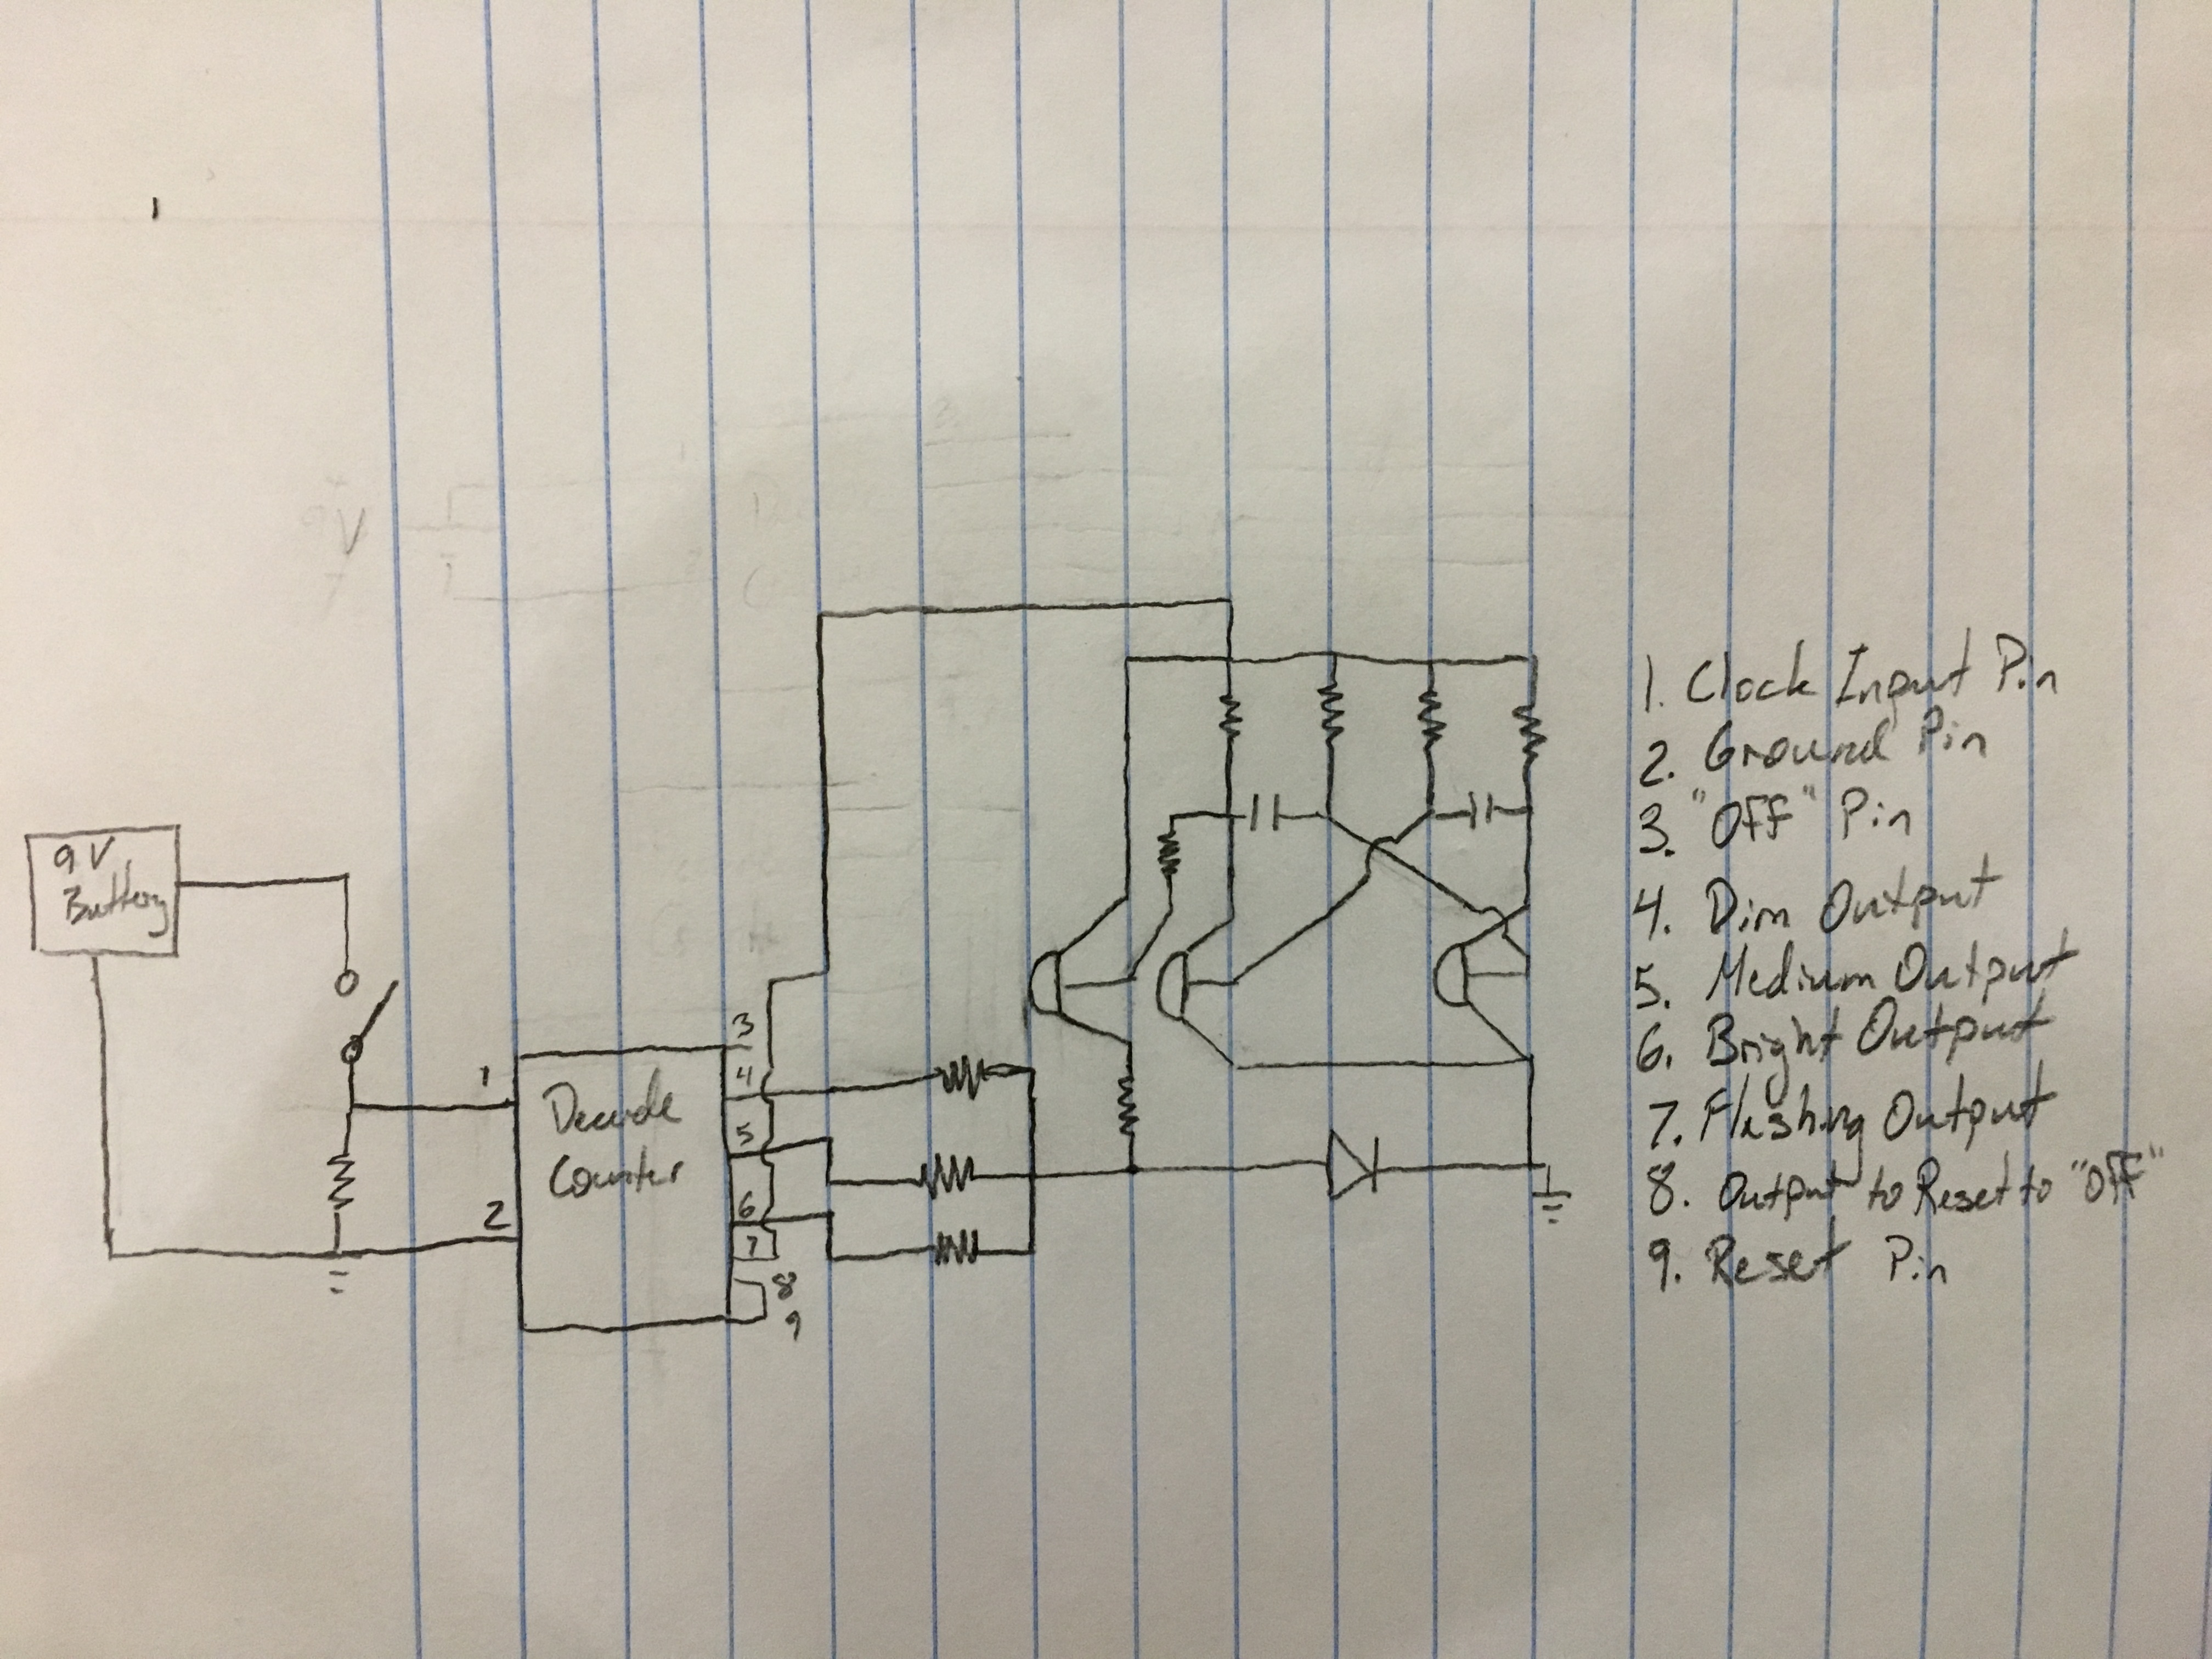 9V
Battery
1
2
Decade
Counter
3
4
5
6
7
8
9
1. Clock Input Pin
2. Ground Pin
3. "Off" Pin
4. Dim Output
5. Medium Output
6. Bright Output
7. Flashing Output
8. Output to Reset to "Off"
9. Reset Pin